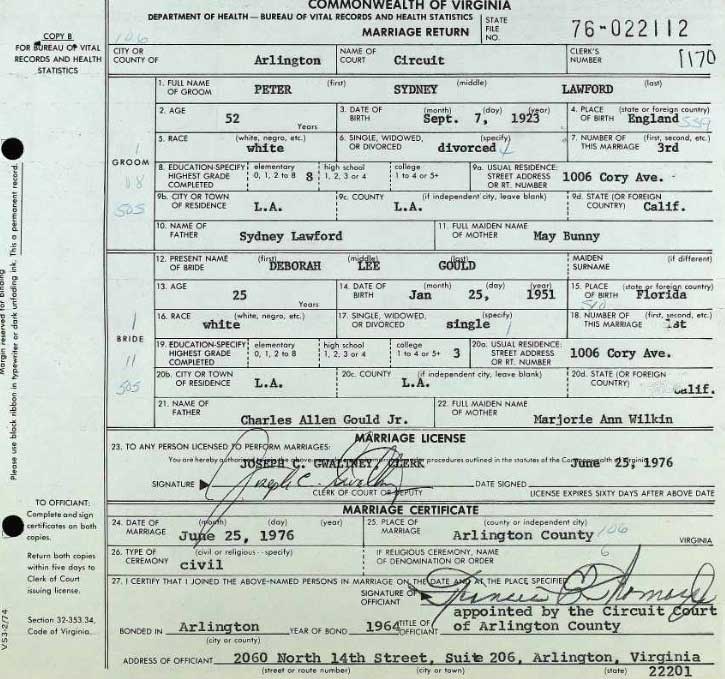 COMMONWEALTH OF VIRGINIA
DEPARTMENT OF HEALTH — BUREAU OF VITAL RECORDS AND HEALTH STATISTICS
MARRIAGE RETURN
STATE FILE NO. 76-022112
COPY B
FOR BUREAU OF VITAL RECORDS AND HEALTH STATISTICS
106
CITY OR COUNTY OF Arlington NAME OF COURT Circuit CLERK'S NUMBER 1170
GROOM
1
08
505
1. FULL NAME OF GROOM (first) PETER (middle) SYDNEY (last) LAWFORD
2. AGE 52 Years 3. DATE OF BIRTH (month) (day) (year) Sept. 7, 1923 4. PLACE OF BIRTH (state or foreign country) England 559
5. RACE (white, negro, etc.) white 6. SINGLE, WIDOWED, OR DIVORCED (specify) divorced 7. NUMBER OF THIS MARRIAGE (first, second, etc.) 3rd
8. EDUCATION-SPECIFY HIGHEST GRADE COMPLETED elementary 0, 1, 2 to 8 8 high school 1, 2, 3 or 4 college 1 to 4 or 5+ 9a. USUAL RESIDENCE: STREET ADDRESS OR RT. NUMBER 1006 Cory Ave.
9b. CITY OR TOWN OF RESIDENCE L.A. 9c. COUNTY (if independent city, leave blank) L.A. 9d. STATE (OR FOREIGN COUNTRY) Calif.
10. NAME OF FATHER Sydney Lawford 11. FULL MAIDEN NAME OF MOTHER May Bunny
BRIDE
1
11
505
12. PRESENT NAME OF BRIDE (first) DEBORAH (middle) LEE (last) GOULD MAIDEN SURNAME (if different)
13. AGE 25 Years 14. DATE OF BIRTH (month) (day) (year) Jan 25, 1951 15. PLACE OF BIRTH (state or foreign country) Florida
16. RACE (white, negro, etc.) white 17. SINGLE, WIDOWED, OR DIVORCED (specify) single 18. NUMBER OF THIS MARRIAGE (first, second, etc.) 1st
19. EDUCATION-SPECIFY HIGHEST GRADE COMPLETED elementary 0, 1, 2 to 8 high school 1, 2, 3 or 4 college 1 to 4 or 5+ 3 20a. USUAL RESIDENCE: STREET ADDRESS OR RT. NUMBER 1006 Cory Ave.
20b. CITY OR TOWN OF RESIDENCE L.A. 20c. COUNTY (if independent city, leave blank) L.A. 20d. STATE (OR FOREIGN COUNTRY) Calif.
21. NAME OF FATHER Charles Allen Gould Jr. 22. FULL MAIDEN NAME OF MOTHER Marjorie Ann Wilkin
MARRIAGE LICENSE
23. TO ANY PERSON LICENSED TO PERFORM MARRIAGES:
You are hereby procedures outlined in the statutes of the Commonwealth of Virginia
JOSEPH C. GWALTNEY, CLERK June 25, 1976
SIGNATURE Joseph C. Gwaltney DATE SIGNED
CLERK OF COURT OR DEPUTY LICENSE EXPIRES SIXTY DAYS AFTER ABOVE DATE
MARRIAGE CERTIFICATE
24. DATE OF MARRIAGE (month) (day) (year) June 25, 1976 25. PLACE OF MARRIAGE (county or independent city) Arlington County 106 VIRGINIA
26. TYPE OF CEREMONY (civil or religious - specify) civil IF RELIGIOUS CEREMONY, NAME OF DENOMINATION OR ORDER 6
27. I CERTIFY THAT I JOINED THE ABOVE-NAMED PERSONS IN MARRIAGE ON THE DATE AND AT THE PLACE SPECIFIED
SIGNATURE OF OFFICIANT Francis
BONDED IN Arlington (city or county) YEAR OF BOND 1964 TITLE OF OFFICIANT appointed by the Circuit Court of Arlington County
ADDRESS OF OFFICIANT 2060 North 14th Street, Suite 206, Arlington, Virginia 22201
(street or route number) (city or town) (state)
TO OFFICIANT:
Complete and sign certificates on both copies.
Return both copies within five days to Clerk of Court issuing license.
Section 32-353.34, Code of Virginia.
VS3-2/74
Margin reserved for binding
Please use black ribbon in typewriter or dark unfading ink. This is a permanent record.